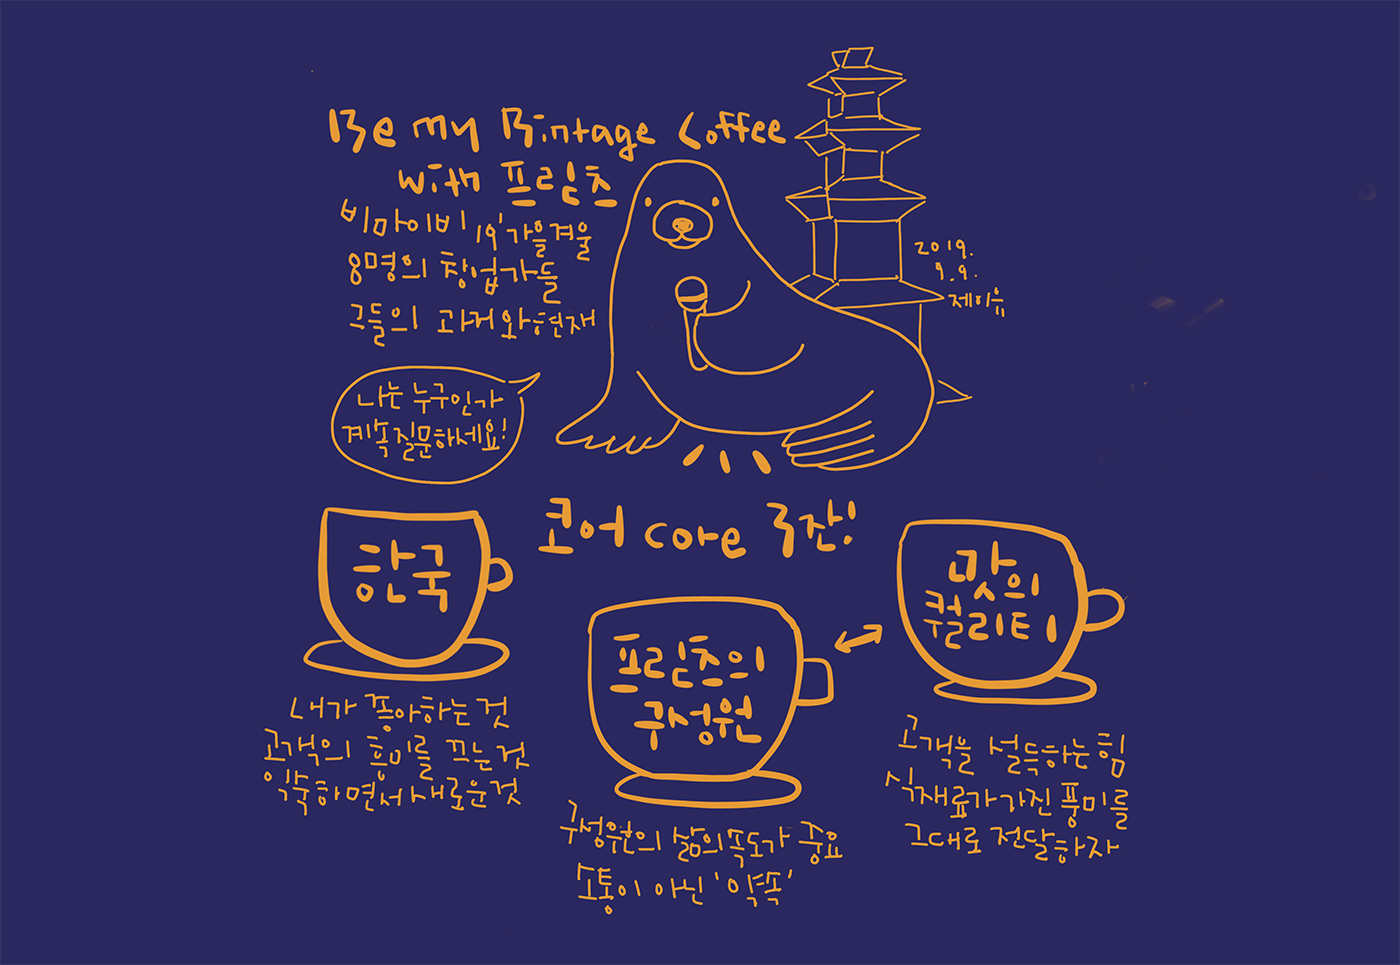 Be my Bintage Coffee
with 프릳츠
비마이비 19'가을겨울
8명의 창업가들
그들의 과거와 현재
2019.
9. 9.
제이유
나는 누구인가
계속 질문하세요!
코어 core 3잔!
한국
내가 좋아하는 것
고객의 흥미를 끄는 것
익숙하면서 새로운 것
프릳츠의
구성원
구성원의 삶의 속도가 중요
소통이 아닌 '약속'
맛의
퀄리티
고객을 설득하는 힘
식재료가 가진 풍미를
그대로 전달하자